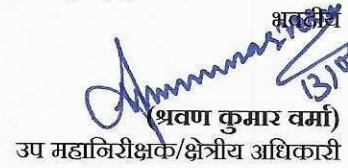 भवदीय
13/0
(श्रवण कुमार वर्मा)
उप महानिरीक्षक/क्षेत्रीय अधिकारी